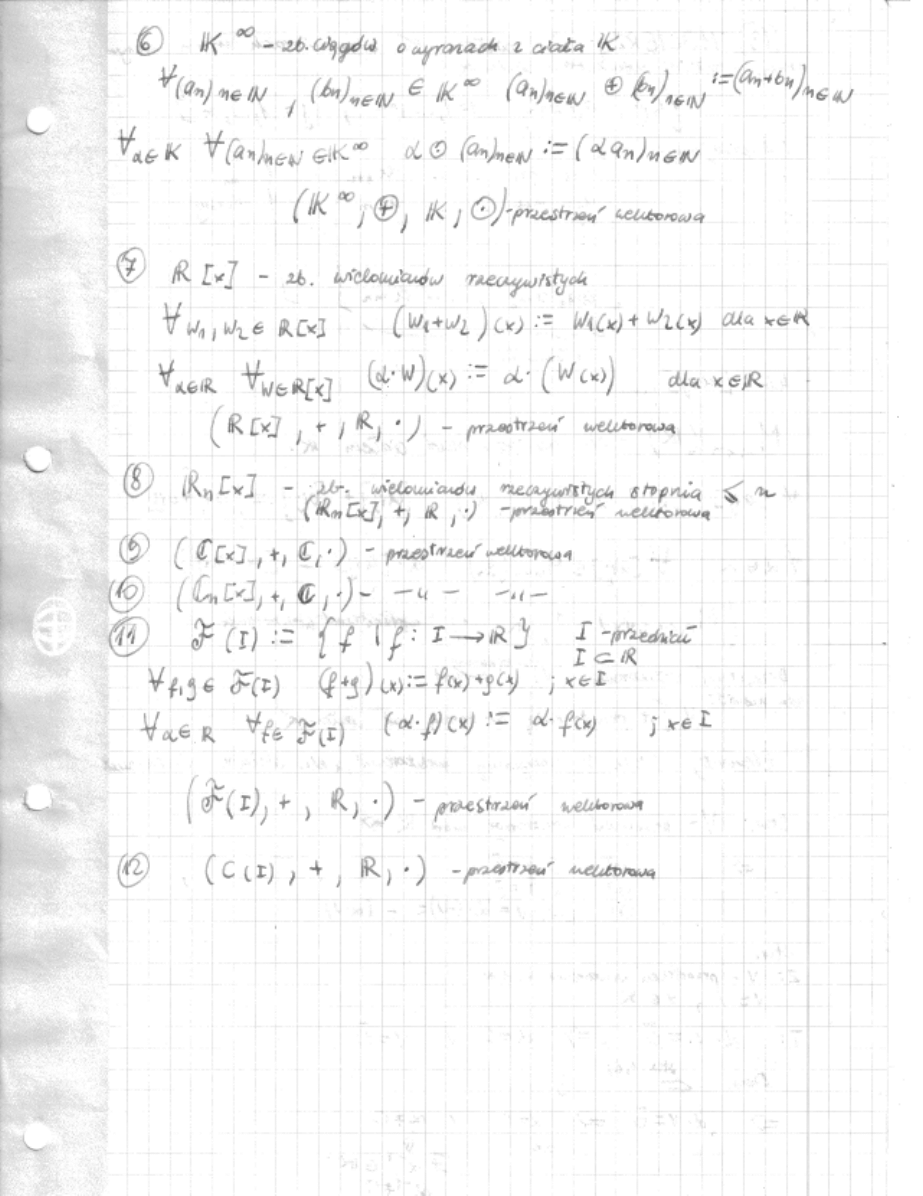 ⑥ 𝕂^∞ - zb. ciągów o wyrazach z ciała 𝕂
∀(an)n∈ℕ, (bn)n∈ℕ ∈ 𝕂^∞ (an)n∈ℕ ⊕ (bn)n∈ℕ := (an+bn)n∈ℕ
∀α∈𝕂 ∀(an)n∈ℕ ∈𝕂^∞ α ⊙ (an)n∈ℕ := (α an)n∈ℕ
(𝕂^∞, ⊕, 𝕂, ⊙) - przestrzeń wektorowa
⑦ ℝ[x] - zb. wielomianów rzeczywistych
∀w₁, w₂ ∈ ℝ[x] (w₁+w₂)(x) := w₁(x) + w₂(x) dla x∈ℝ
∀α∈ℝ ∀W∈ℝ[x] (α·W)(x) := α·(W(x)) dla x∈ℝ
(ℝ[x], +, ℝ, ·) - przestrzeń wektorowa
⑧ ℝn[x] - zb. wielomianów rzeczywistych stopnia ≤ n
(ℝn[x], +, ℝ, ·) - przestrzeń wektorowa
⑨ (ℂ[x], +, ℂ, ·) - przestrzeń wektorowa
⑩ (ℂn[x], +, ℂ, ·) - —„— —„—
⑪ ℱ(I) := {f | f: I → ℝ} I - przedział
I ⊂ ℝ
∀f,g ∈ ℱ(I) (f+g)(x) := f(x)+g(x) ; x∈I
∀α∈ℝ ∀f∈ℱ(I) (α·f)(x) := α·f(x) ; x∈I
(ℱ(I), +, ℝ, ·) - przestrzeń wektorowa
⑫ (C(I), +, ℝ, ·) - przestrzeń wektorowa